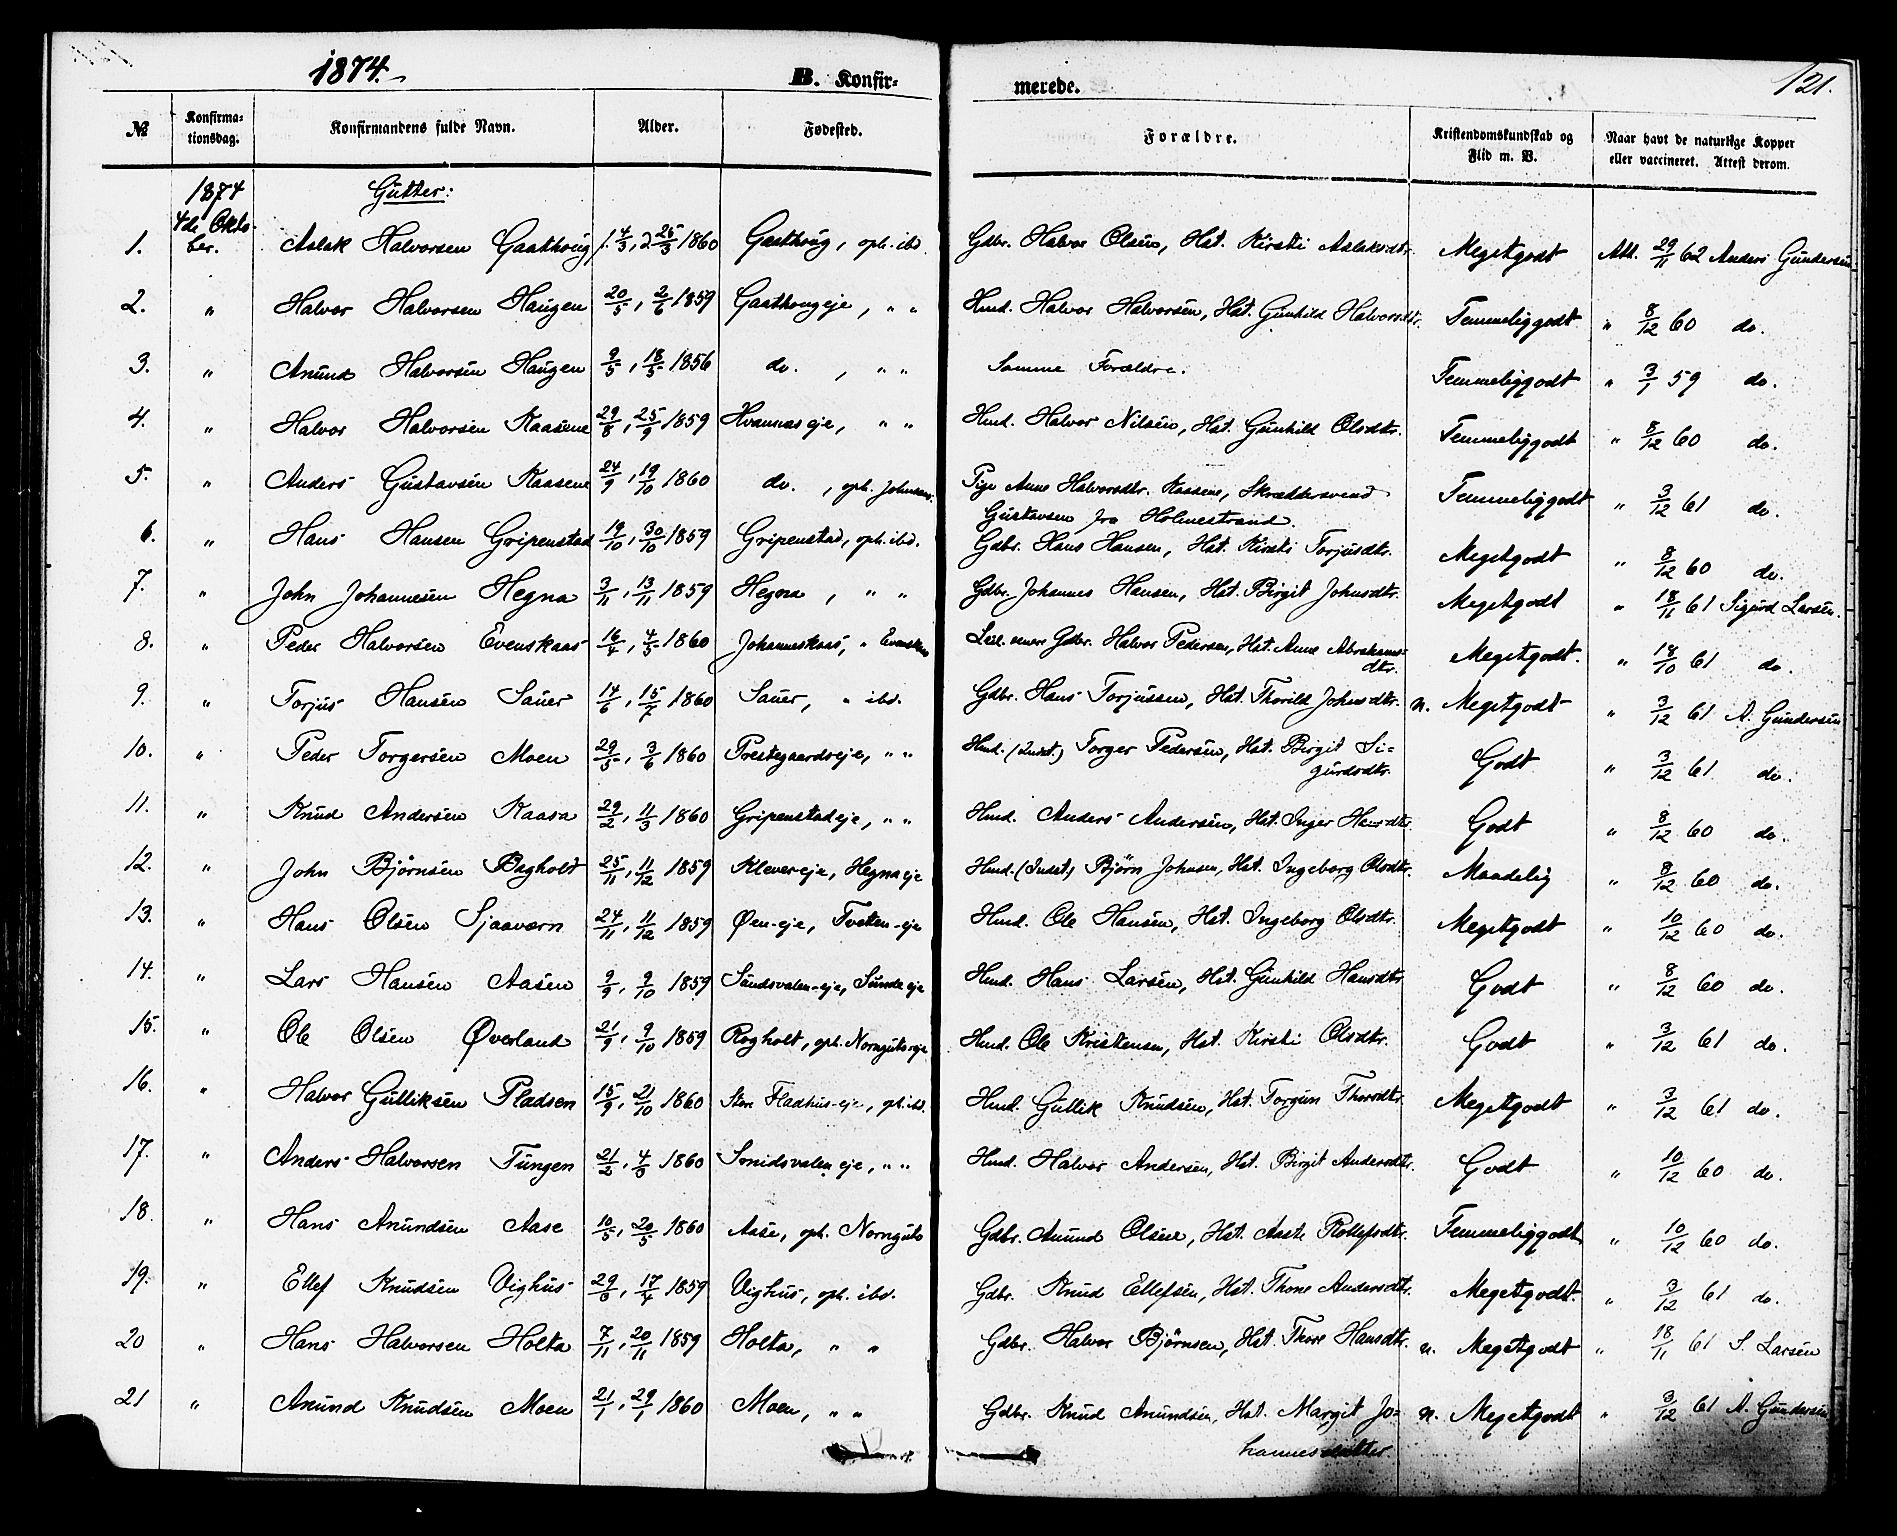 1874.
B. Konfir=
merede.
121.
№
Konfirma=
tionsdag.
Konfirmandens fulde Navn.
Alder.
Fødested.
Forældre.
Kristendomskundskab og
Flid m. V.
Naar havt de naturlige Kopper
eller vaccineret. Attest derom.
1874 Gutter:
4de Okto-
1. ber. Aslak Halvorsen Gaathoug f. 4/3, d. 25/3 1860 Gaathoug, oph. ibd. Gdbr. Halvor Olsen, Hst. Kirsti Aslaksdtr. Megetgodt Att. 29/11 62 Anders Gundersen
2. " Halvor Halvorsen Haugen 20/5, 2/6 1859 Gaathougeje, " " Hmd. Halvor Halvorsen, Hst. Gunhild Halvorsdtr. Temmeliggodt " 8/12 60 do.
3. " Anund Halvorsen Haugen 9/5, 18/5 1856 do. , " " Samme Forældre. Temmeliggodt " 3/1 59 do.
4. " Halvor Halvorsen Kaasene 29/8, 25/9 1859 Hvannæseje, " " Hmd. Halvor Nilsen, Hst. Gunhild Olsdtr. Temmeliggodt " 8/12 60 do.
5. " Anders Gustavsen Kaasene 24/9, 19/10 1860 do. , oph. Johnsaas. Pige Anne Halvorsdtr. Kaasene, Skræddersvend Temmeliggodt " 3/12 61 do.
Gustavsen fra Holmestrand.
6. " Hans Hansen Gripenstad 19/10, 30/10 1859 Gripenstad, oph. ibd. Gdbr. Hans Hansen, Hst. Kirsti Torjusdtr. Megetgodt " 8/12 60 do.
7. " John Johannesen Hegna 3/11, 13/11 1859 Hegna, " " Gdbr. Johannes Hansen, Hst. Birgit Johnsdtr. Megetgodt " 18/11 61 Sigurd Larsen.
8. " Peder Halvorsen Evenskaas 16/4, 4/5 1860 Johanneskaas, " Evenskaas Gdbr. Halvor Pedersen, Hst. Anne Abrahams-
dtr. Megetgodt. " 18/10 61 do.
9. " Torjus Hansen Sauer 14/6, 15/7 1860 Sauer, " ibd. Gdbr. Hans Torjussen, Hst. Thorild Johnsdtr. n. Megetgodt " 3/12 61 A. Gundersen
10. " Peder Torgersen Moen 29/5, 3/6 1860 Prestegaardseje, " " Hmd. (Indst.) Torger Pedersen, Hst. Birgit Si=
gurdsdtr. Godt " 3/12 61 do.
11. " Knud Andersen Kaasa 29/2, 11/3 1860 Gripenstadeje, " " Hmd. Anders Andersen, Hst. Inger Hansdtr. Godt " 8/12 60 do.
12. " John Bjørnsen Bagholt 25/11, 11/12 1859 Klevereje, Hegnaeje Hmd. (Indst.) Bjørn Johnsen, Hst. Ingeborg Olsdtr. Maadelig " 8/12 60 do.
13. " Hans Olsen Sjaavorn 24/11, 11/12 1859 Øen-eje, Tveten-eje Hmd. Ole Hansen, Hst. Ingeborg Olsdtr. Megetgodt " 10/12 60 do.
14. " Lars Hansen Aasen 9/9, 9/10 1859 Sundsvalen-eje, Sundeeje Hmd. Hans Larsen, Hst. Gunhild Hansdtr. Godt " 8/12 60 do.
15. " Ole Olsen Øverland 21/9, 9/10 1859 Rogholt, oph. Nornguts-eje Hmd. Ole Kristensen, Hst. Kirsti Olsdtr. Godt " 3/12 61 do.
16. " Halvor Gulliksen Pladsen 15/9, 21/10 1860 Store Fladhus-eje, op. ibd. Hmd. Gullik Knudsen, Hst. Torgun Thorsdtr. Megetgodt " 3/12 61 do.
17. " Anders Halvorsen Tungen 21/2, 4/3 1860 Smidsvaleneje, " " Hmd. Halvor Andersen, Hst. Birgit Andersdtr. Godt " 10/12 60 do.
18. " Hans Anundsen Aase 10/5, 20/5 1860 Aase, oph. Nornguts Gdbr. Anund Olsen, Hst. Aaste Rollefsdtr. Temmeliggodt " 10/12 60 do.
19. " Ellef Knudsen Vighus 29/3, 17/4 1859 Vighus, oph. ibd. Gdbr. Knud Ellefsen, Hst. Thone Andersdtr. Megetgodt. " 3/12 61 do.
20 " Hans Halvorsen Holta 7/11, 20/11 1859 Holta, " " Gdbr. Halvor Bjørnsen, Hst. Thore Hansdtr. n. Megetgodt " 18/11 61 S. Larsen
21 " Anund Knudsen Moen 21/1, 29/1 1860 Moen, " " Gdbr. Knud Anundsen, Hst. Margit Jo= n. Megetgodt " 3/12 61 A. Gundersen
hannesdatter.